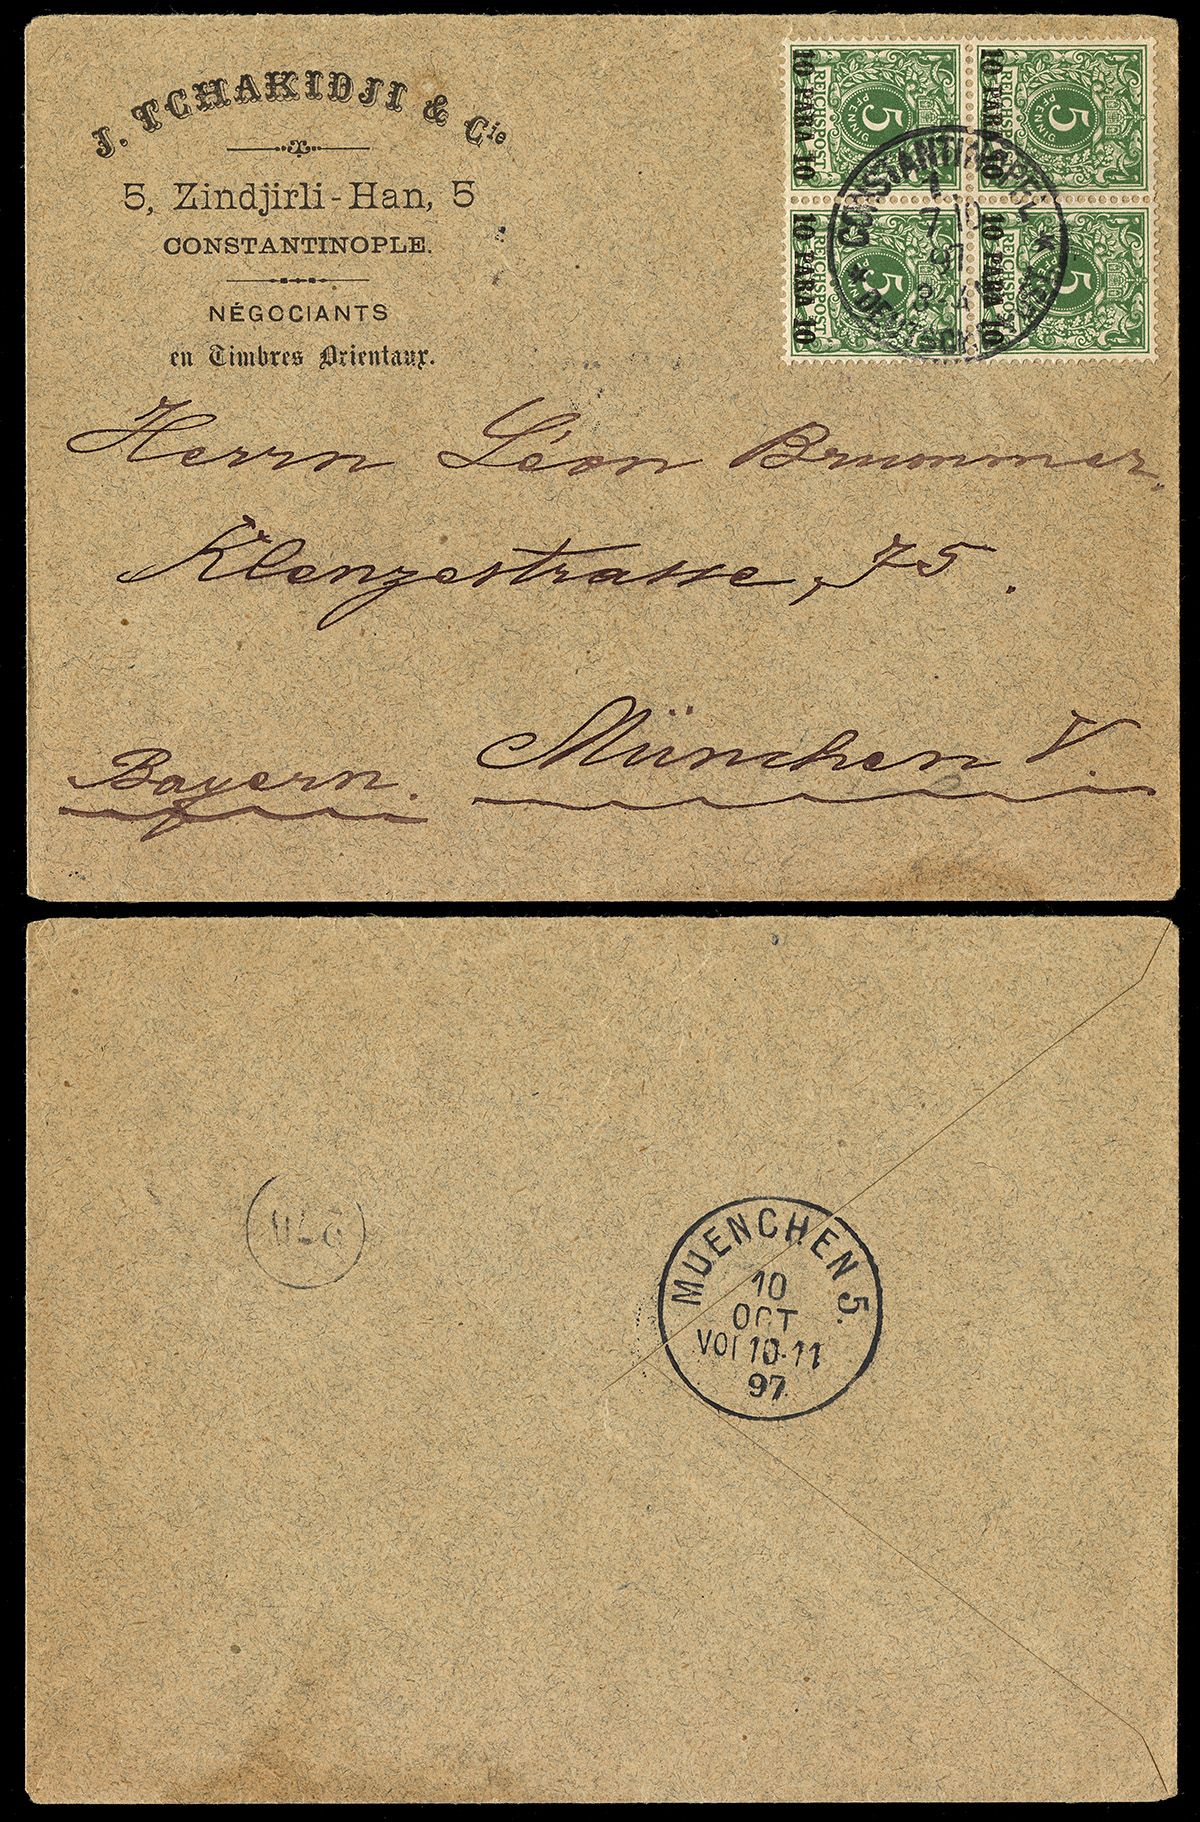 J. TCHAKIDJI & Cie
5, Zindjirli-Han, 5
CONSTANTINOPLE.
NÉGOCIANTS
en Timbres Orientaux.
10 PARA 10
REICHSPOST
5
PFENNIG
10 PARA 10
REICHSPOST
5
PFENNIG
10 PARA 10
REICHSPOST
5
10 PARA 10
REICHSPOST
5
CONSTANTINOPEL
1
7 10
97
* DEUTSCHE
Herrn Léon Brummer.
Klenzestrasse, 75.
München V.
Bayern.
MUENCHEN 5.
10
OCT
VOR 10-11
97.